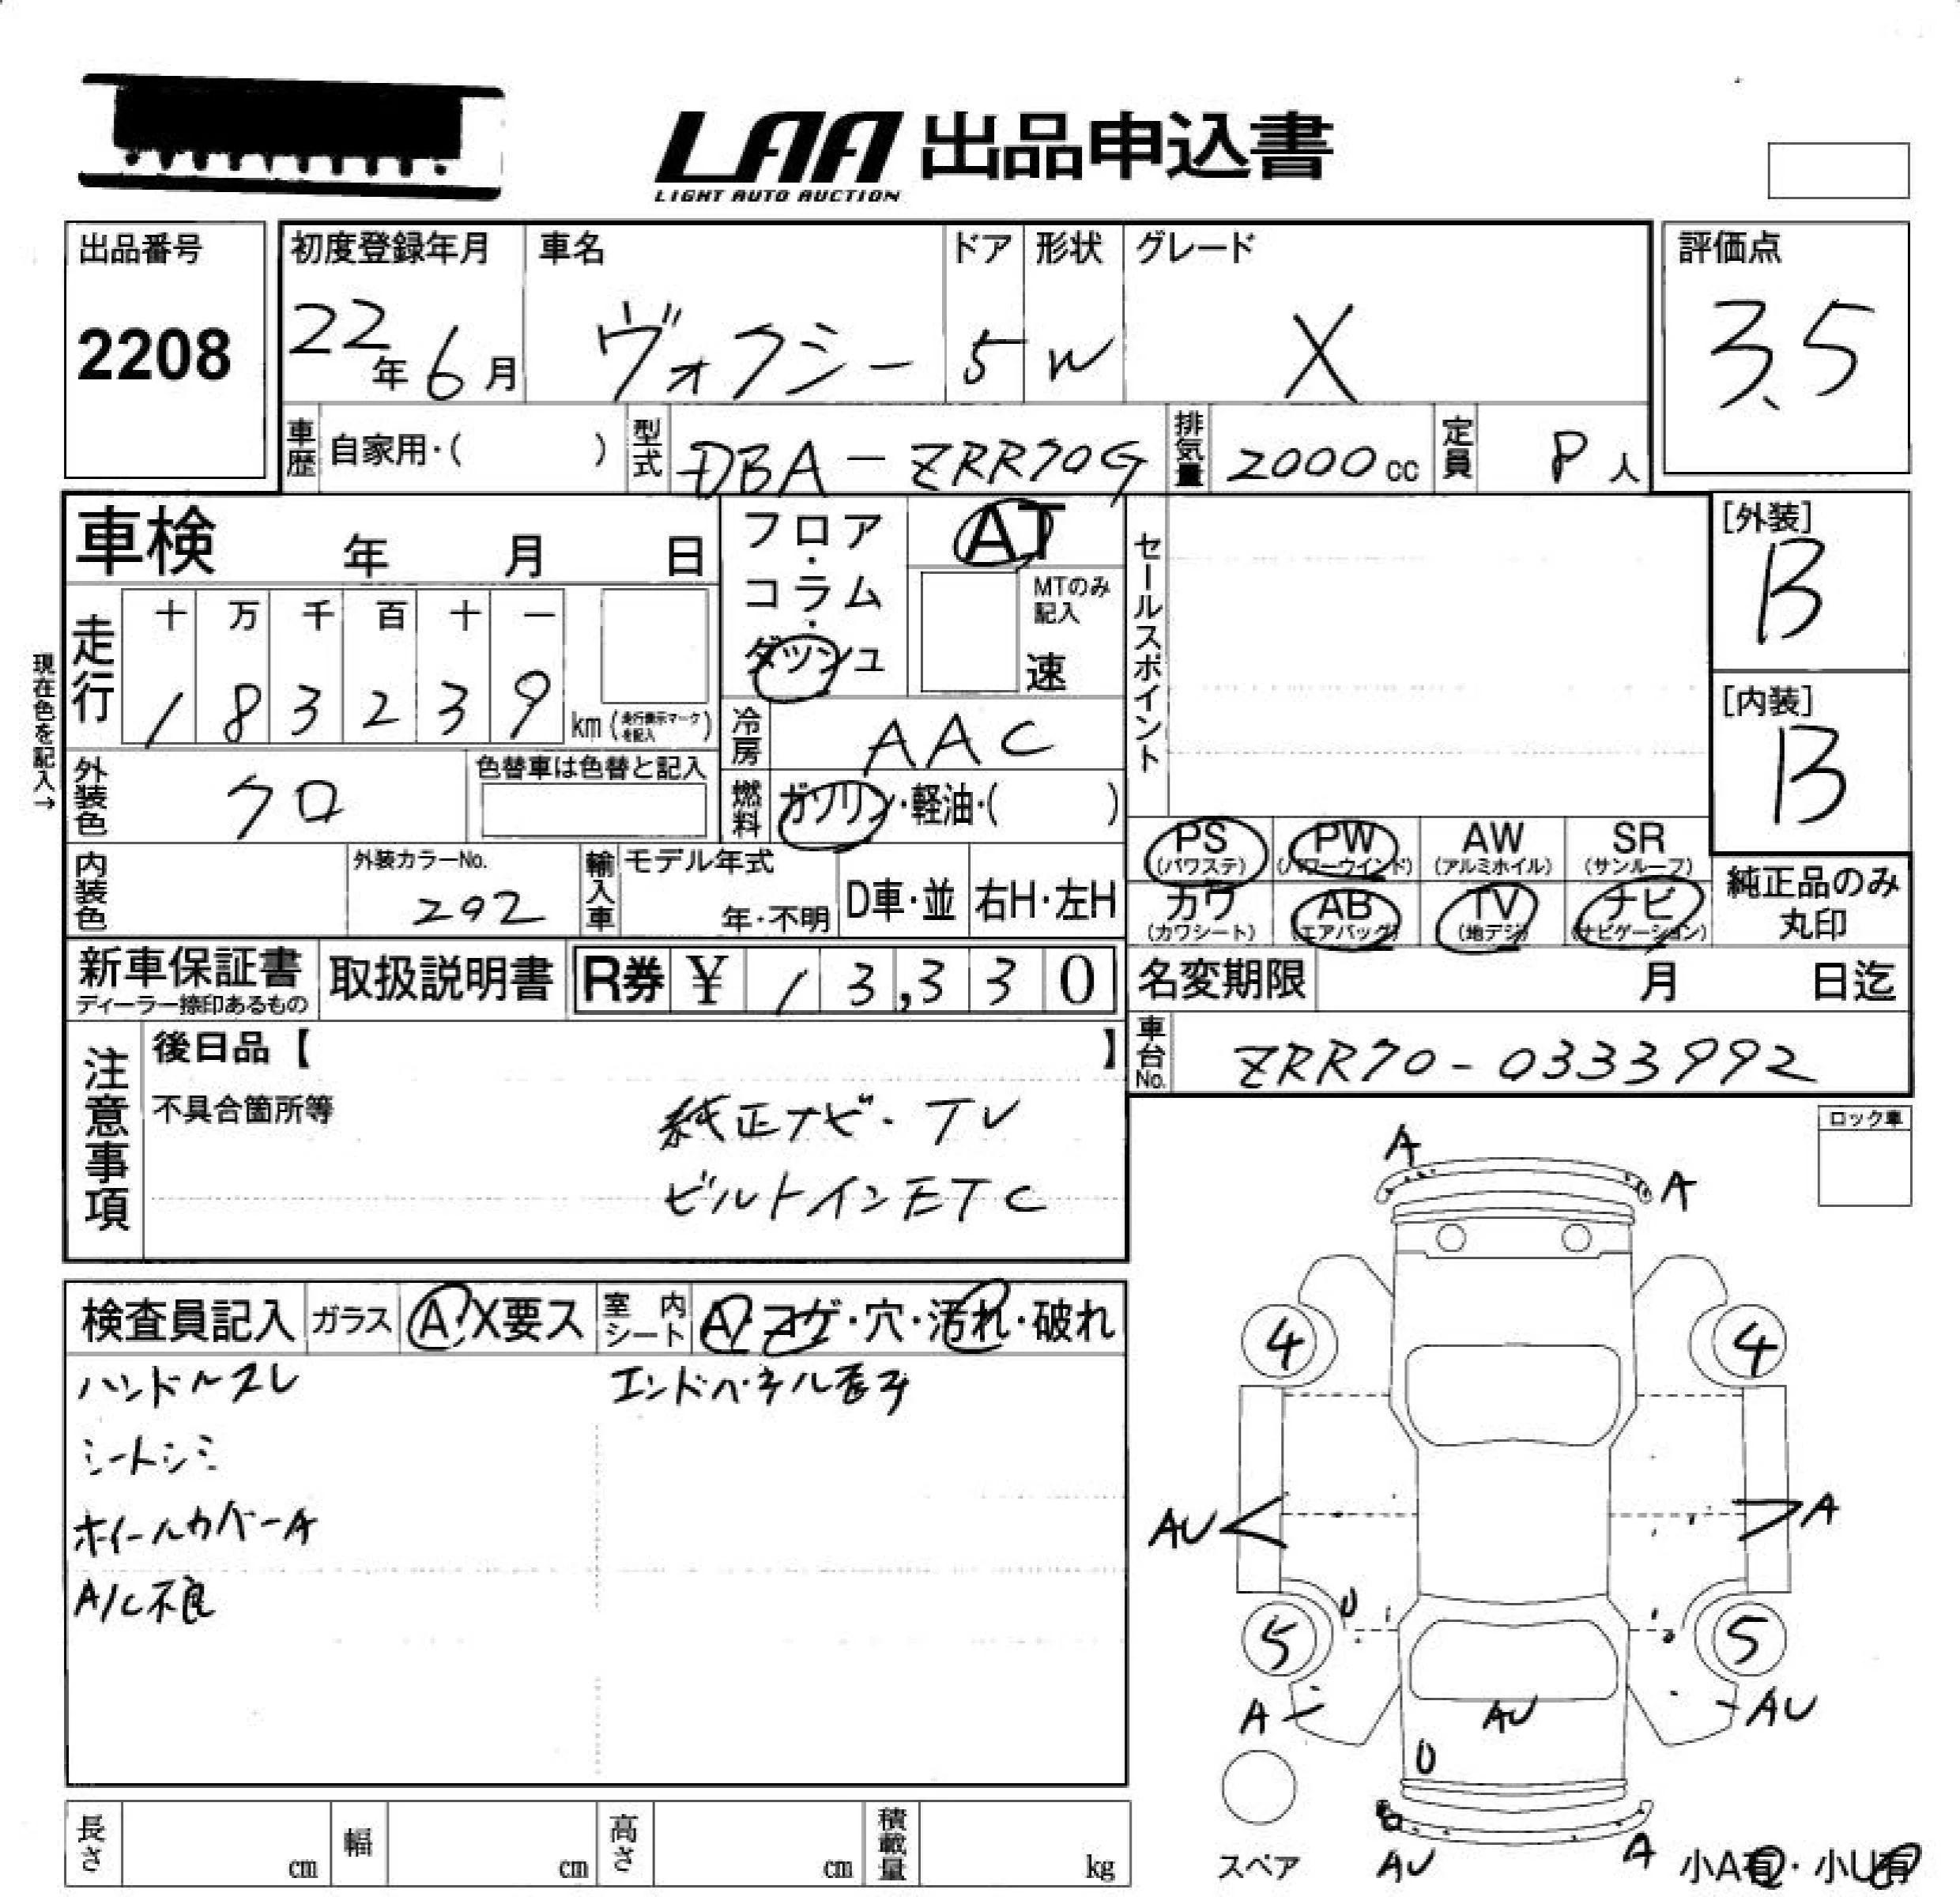 LAA 出品申込書
LIGHT AUTO AUCTION
出品番号
2208
初度登録年月
22年6月
車名
ヴォクシー
ドア
5
形状
W
グレード
X
評価点
3.5
車歴 自家用・( )
型式 DBA-ZRR70G
排気量 2000cc
定員 8人
車検 年 月 日
現在色を記入→
走行
十 万 千 百 十 一
1 8 3 2 3 9 km (走行表示マークを記入)
フロア・コラム・ダッシュ
AT
MTのみ記入
速
冷房 AAC
燃料 ガソリン・軽油・( )
セールスポイント
[外装]
B
[内装]
B
外装色 クロ
色替車は色替と記入
内装色
外装カラーNo.
292
輸入車
モデル年式
年・不明
D車・並
右H・左H
PS (パワステ)
PW (パワーウインド)
AW (アルミホイル)
SR (サンルーフ)
カワ (カワシート)
AB (エアバッグ)
TV (地デジ)
ナビ (ナビゲーション)
純正品のみ丸印
新車保証書
ディーラー捺印あるもの
取扱説明書
R券 ¥ 13,330
名変期限 月 日迄
車台No. ZRR70-0333992
注意事項
後日品【 】
不具合箇所等
純正ナビ・TV
ビルトインETC
ロック車
検査員記入
ガラス A・X要ス
室内シート A・コゲ・穴・汚れ・破れ
ハンドルスレ
エンドパネル歪み
シートシミ
ホイールカバーA
A/C不良
A
A
4
4
AU
A
U
5
5
A
AU
AU
U
AU
A
スペア
小A有・小U有
長さ cm
幅 cm
高さ cm
積載量 kg